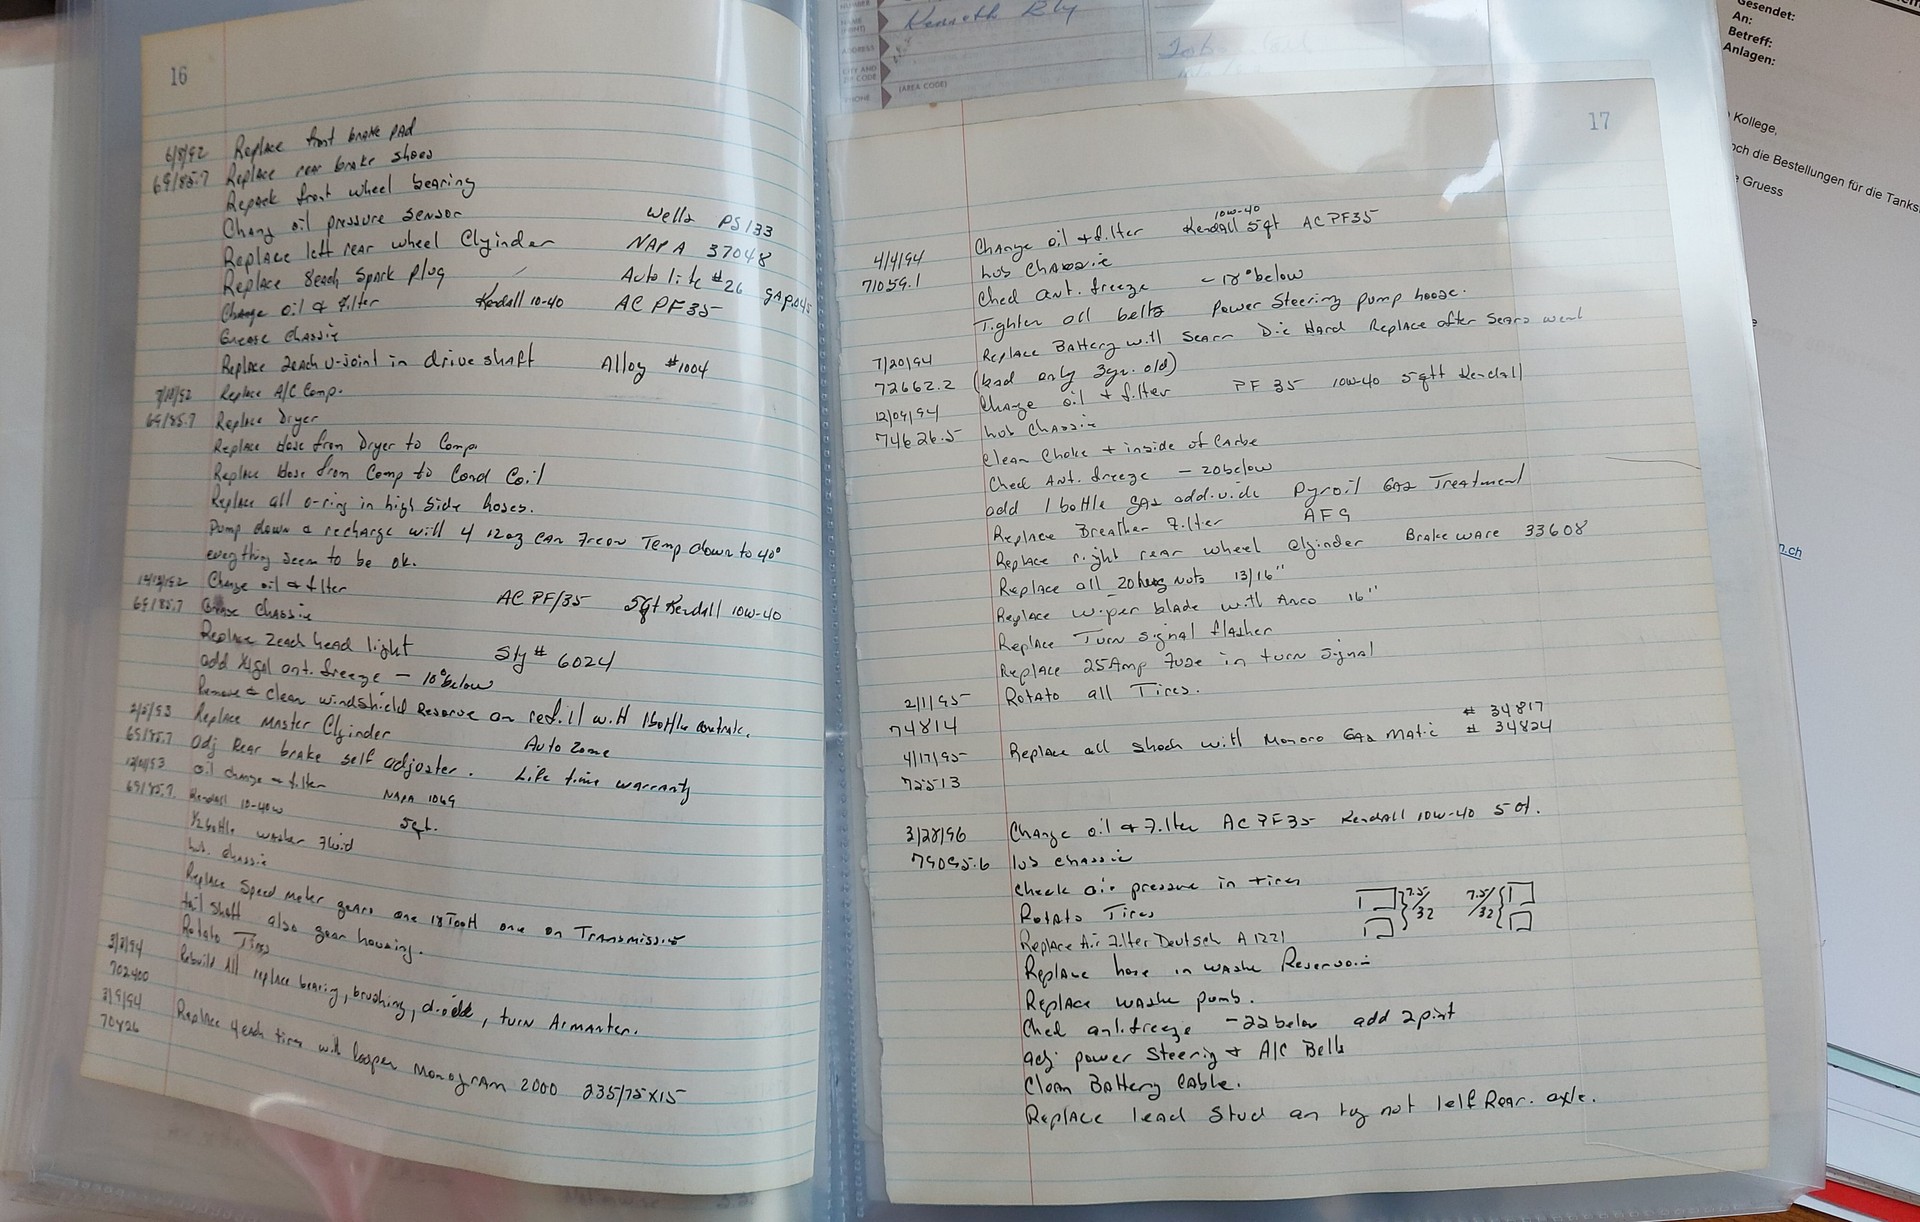 16
6/8/92 Replace front brake pad
69185.7 Replace rear brake shoes
Repack front wheel bearing
Chang oil pressure sensor Wells PS133
Replace left rear wheel Clyinder NAPA 37048
Replace 8each spark plug Auto lite #26 gap.045
Change oil & filter Kendall 10-40 AC PF35
Grease Chassie
Replace 2each U-joint in drive shaft Alloy #1004
Replace A/C Comp.
69185.7 Replace Dryer
Replace Hose from Dryer to Comp.
Replace Hose from Comp to Cond Coil
Replace all o-ring in high side hoses.
Pump down & recharge will 4 12oz can Freon Temp down to 40°
everything seem to be ok.
Change oil & filter AC PF/35 5qt Kendall 10W-40
69185.7 Grease Chassie
Replace 2each head light Sty# 6024
add gal ant. freeze - 10° below
Remove & clean windshield Reserve an refill with 1bottle
2/5/93 Replace Master Clyinder Auto Zone
69185.7 Adj Rear brake self adjoster. Life time warranty
oil change & filter NAPA 1069
69185.7 Kendall 10-40w 5qt.
1/2 bottle washer fluid
lub. chassie
Replace Speed meter gears one 18 Tooth one on Transmissio
tail shaft also gear housing.
Rotato Tires
3/3/94 Rebuild Alt replace bearing, brushing, diode, turn Armanter.
702400
3/9/94 Replace 4each tires will Cooper Monogram 2000 235/75x15
70826
Kenneth
(AREA CODE)
17
4/4/94 Change oil & filter Kendall 10w-40 5qt AC PF35
71059.1 lub Chassie
Ched ant. freeze - 18° below
Tighten all belts Power Steering pump hoose.
7/20/94 Replace Battery will Sears Die Hard Replace after Sears went
72662.2 (bad only 3yr. old)
12/09/94 Change oil & filter PF 35 10W-40 5qtt Kendall
74626.5 lub Chassie
Clean Choke + inside of Carbe
Ched Ant. freeze - 20 below
add 1 bottle gas Pyroil Gas Treatment
Replace Breather Filter AF9
Replace right rear wheel Clyinder Brake ware 33608
Replace all 20 lug nuts 13/16"
Replace wiper blade with Anco 16"
Replace Turn signal flasher
Replace 25Amp Fuse in turn signal
2/1/95 Rotato all Tires.
74814
4/17/95 Replace all Shock will Monoro Gas Matic # 34817 # 34824
72513
3/28/96 Change oil & Filter AC PF35 Kendall 10W-40 5 qt.
79095.6 lub chassie
Check air pressure in tires
Rotato Tires 7.5/32 7.5/32
Replace Air Filter Deutsch A1221
Replace hose in washe Reservoir
Replace washe pumb.
Ched anti.freeze -22 below add 2pint
adj power Steering & A/C Belts
Clean Battery Cable.
Replace lead Stud an lug not left Rear. axle.
Gesendet:
An:
Betreff:
Anlagen:
Kollege,
och die Bestellungen für die Tanks
Gruess
n.ch